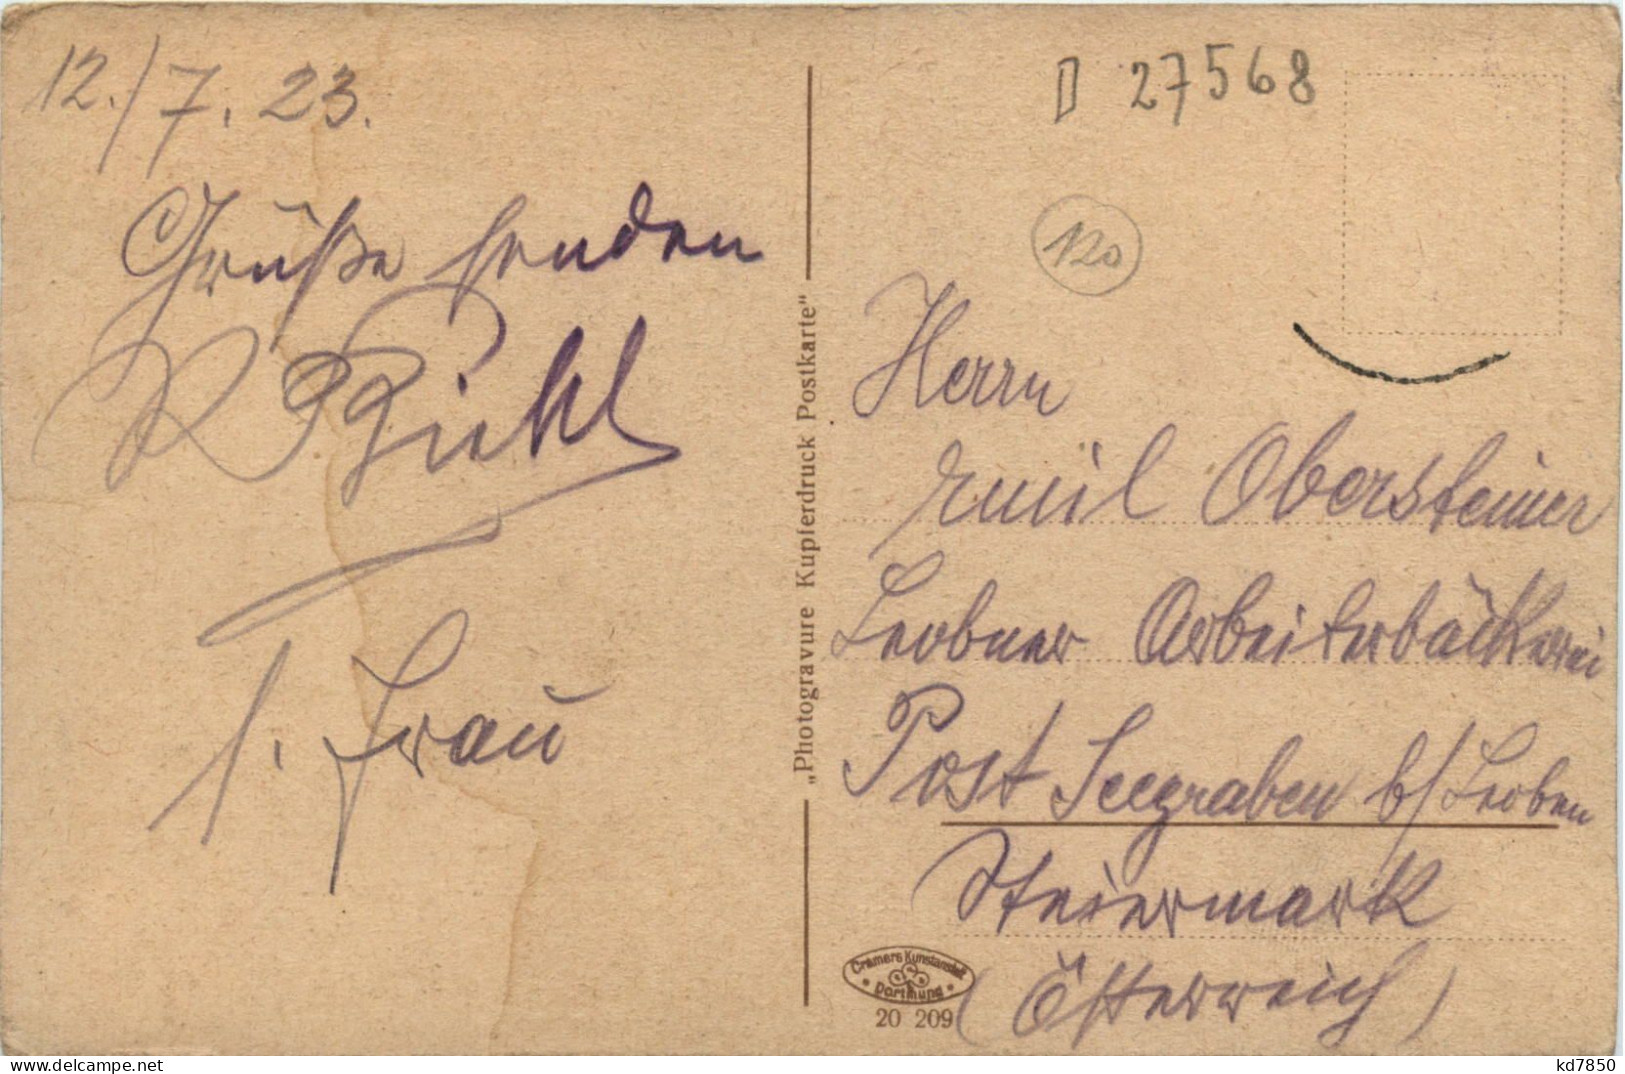 12./7. 23.
Grüße senden
R Riehl
s. Frau
„Photogravure Kupferdruck Postkarte"
D 27568
120
Herrn
Emil Obersteiner
Leobner Arbeiterbäckerei
Post Seegraben b/Leoben
Steiermark
(Österreich)
Cramers Kunstanstalt
Dortmund
20 209
delcampe.net
kd7850